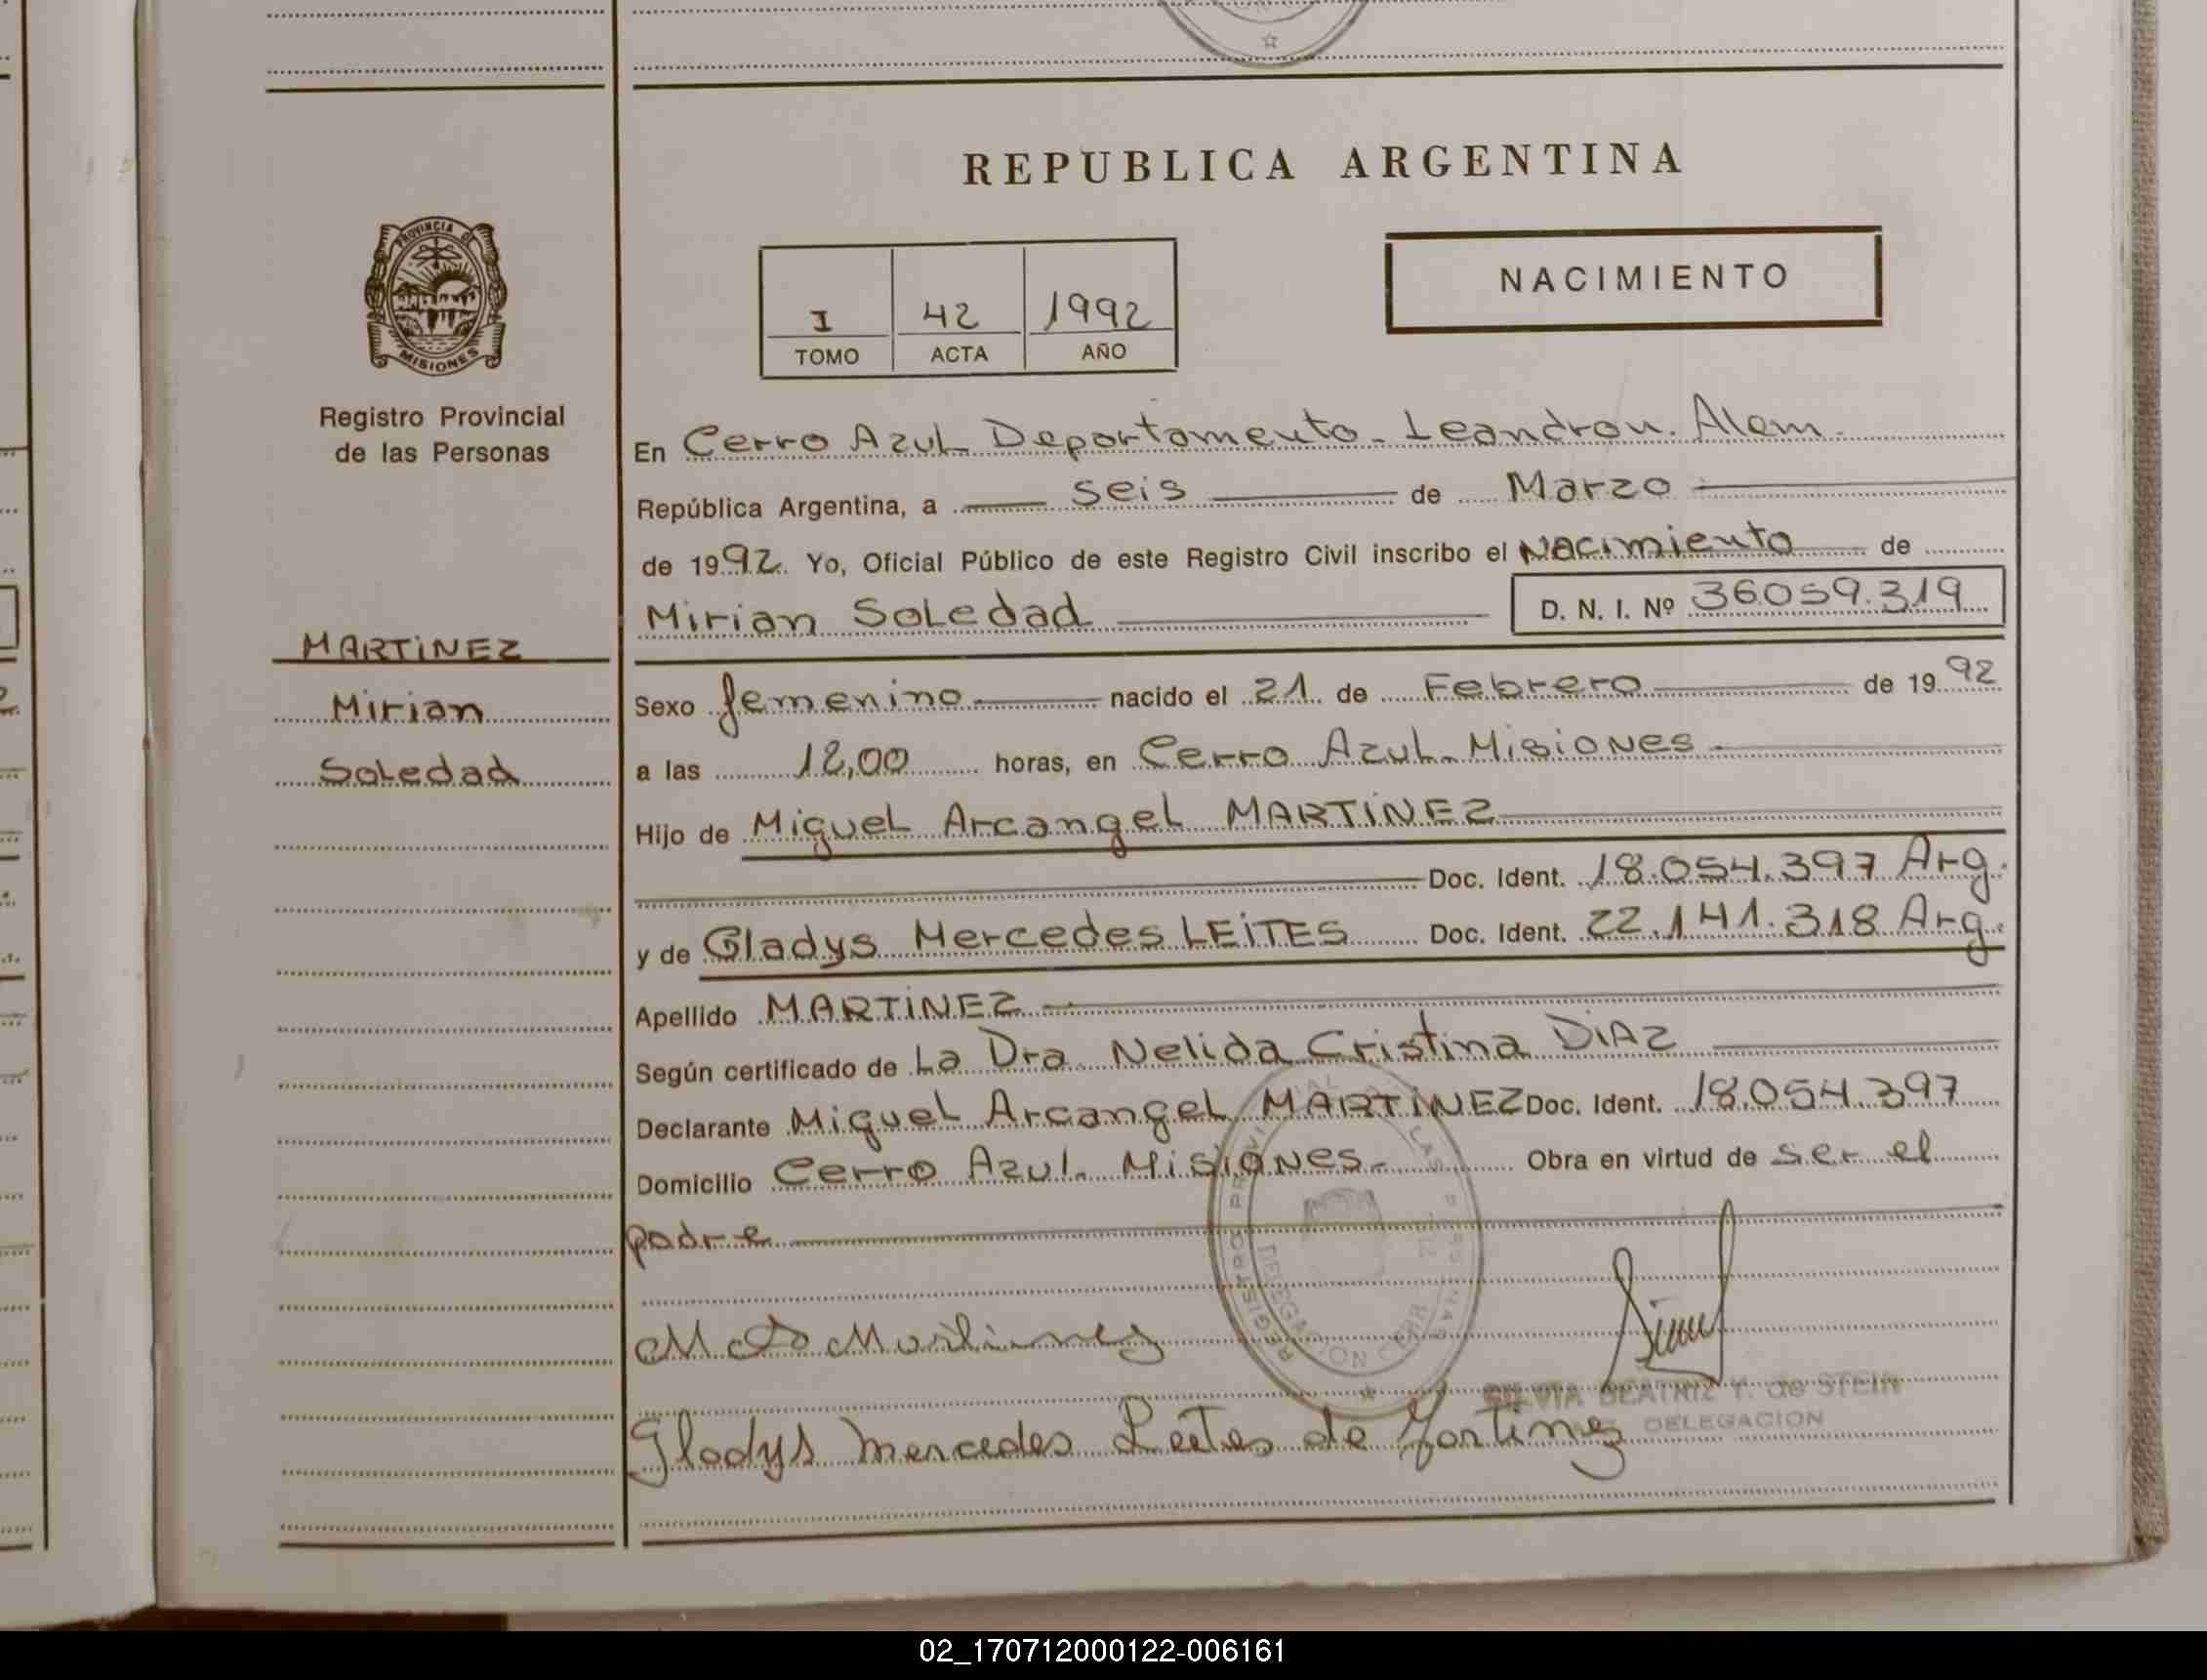 REPUBLICA ARGENTINA
PROVINCIA DE
MISIONES
Registro Provincial
de las Personas
I 42 1992
TOMO ACTA AÑO
NACIMIENTO
En Cerro Azul Departamento - Leandro N. Alem.
República Argentina, a seis de Marzo
de 1992. Yo, Oficial Público de este Registro Civil inscribo el Nacimiento de
Mirian Soledad D. N. I. Nº 36.059.319
MARTINEZ
Mirian
Soledad
Sexo femenino nacido el 21 de Febrero de 1992
a las 12,00 horas, en Cerro Azul - Misiones
Hijo de Miguel Arcangel MARTINEZ
Doc. Ident. 18.054.397 Arg.
y de Gladys Mercedes LEITES Doc. Ident. 22.141.318 Arg.
Apellido MARTINEZ
Según certificado de La Dra Nelida Cristina DIAZ
Declarante Miguel Arcangel MARTINEZ Doc. Ident. 18.054.397
Domicilio Cerro Azul - Misiones - Obra en virtud de ser el
padre
Martinez
SILVIA BEATRIZ T. de STEIN
DELEGACION
Gladys Mercedes Leites de Martinez
02_170712000122-006161